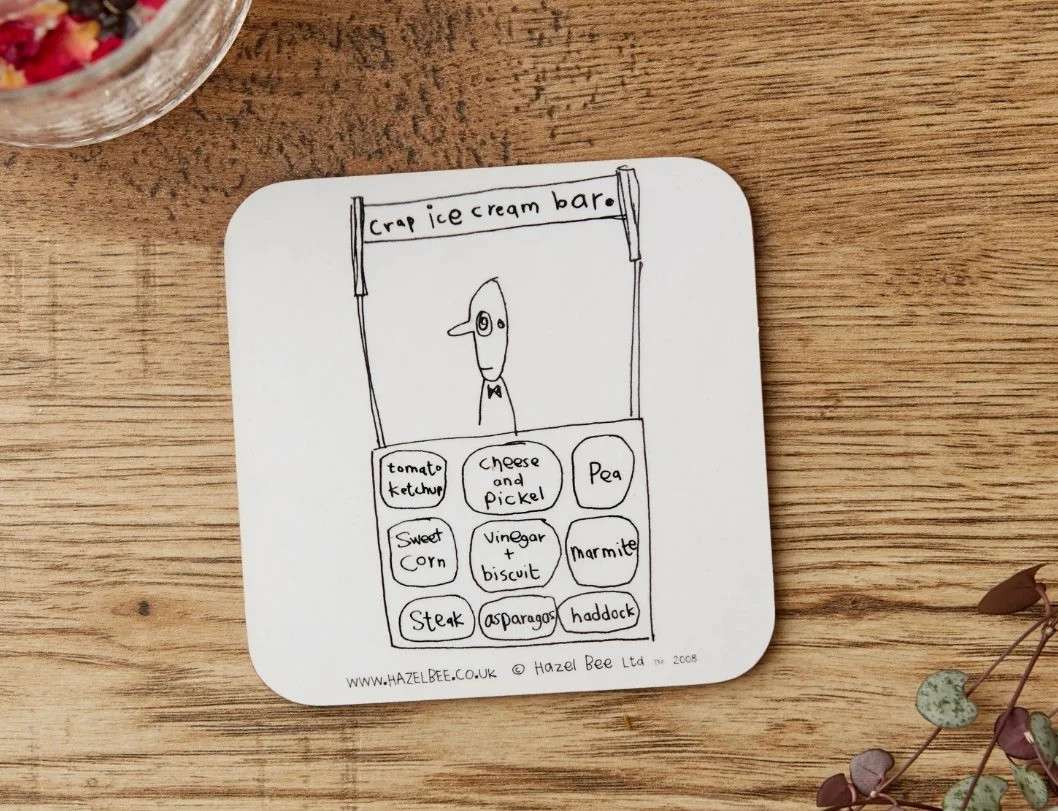 crap ice cream bar.
tomato
ketchup
cheese
and
pickel
Pea
Sweet
Corn
vinegar
+
biscuit
marmite
Steak
asparagos
haddock
WWW.HAZELBEE.CO.UK © Hazel Bee Ltd ™ 2008